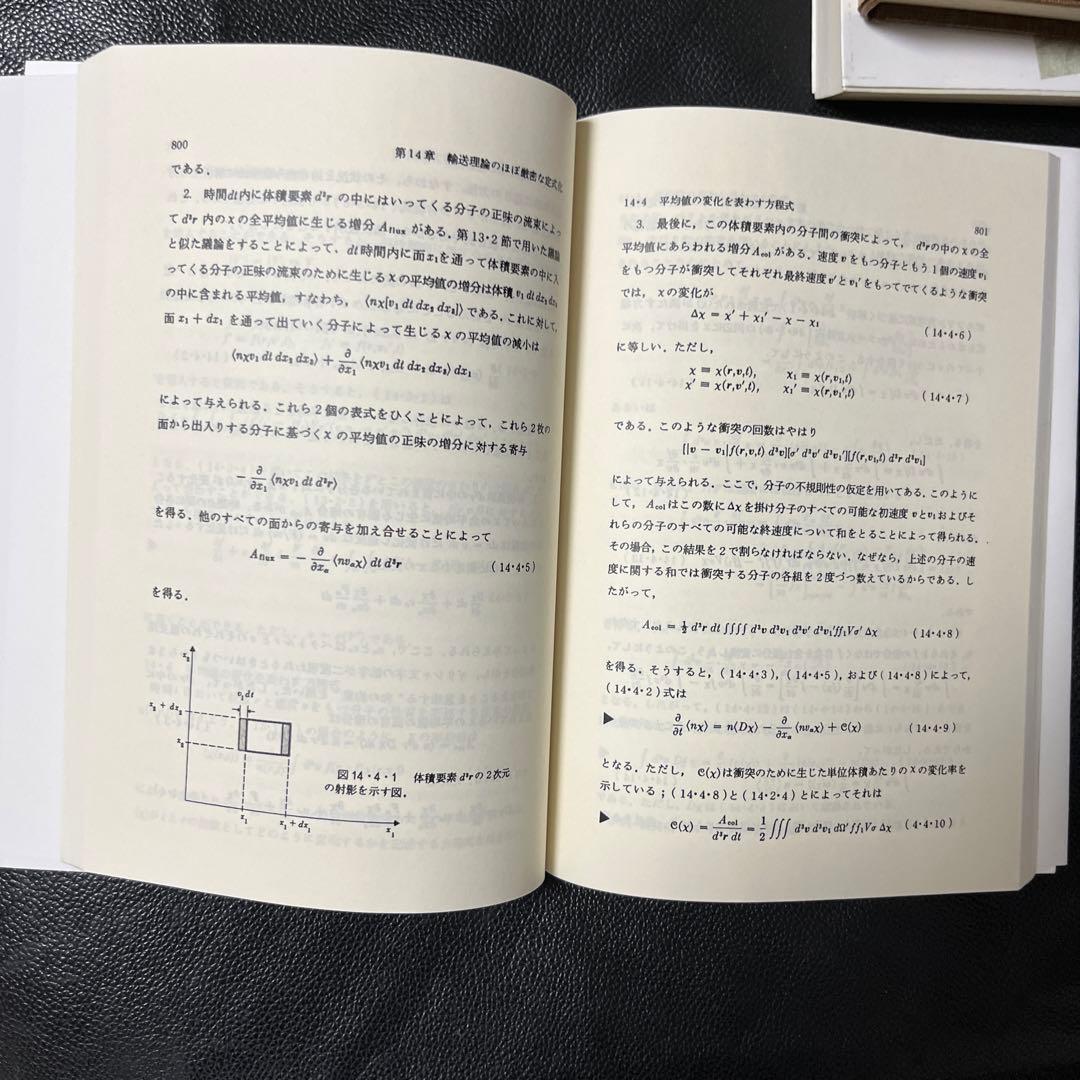 800
第14章 輸送理論のほぼ厳密な定式化
である．
2. 時間dt内に体積要素 d³r の中にはいってくる分子の正味の流束によっ
て d³r 内のχの全平均値に生じる増分 Aflux がある．第13・2節で用いた議論
と似た議論をすることによって， dt時間内に面x₁を通って体積要素の中に入
ってくる分子の正味の流束のために生じるχの平均値の増分は体積 v₁ dt dx₂ dx₃
の中に含まれる平均値，すなわち， ⟨nχ[v₁ dt dx₂ dx₃]⟩ である．これに対して，
面 x₁ + dx₁ を通って出ていく分子によって生じるχの平均値の減小は
⟨nχv₁ dt dx₂ dx₃⟩ + ∂/∂x₁ ⟨nχv₁ dt dx₂ dx₃⟩ dx₁
によって与えられる．これら2個の表式をひくことによって，これら2枚の
面から出入りする分子に基づくχの平均値の正味の増分に対する寄与
− ∂/∂x₁ ⟨nχv₁ dt d³r⟩
を得る．他のすべての面からの寄与を加え合せることによって
Aflux = − ∂/∂xα ⟨nvαχ⟩ dt d³r (14・4・5)
を得る．
x₂
v₁dt
x₂ + dx₂
x₂
x₁
x₁ + dx₁
x₁
図14・4・1 体積要素 d³r の2次元
の射影を示す図．
14・4 平均値の変化を表わす方程式
801
3. 最後に，この体積要素内の分子間の衝突によって， d³rの中のχの全
平均値にあらわれる増分 Acol がある．速度 v をもつ分子ともう1個の速度 v₁
をもつ分子が衝突してそれぞれ最終速度v′とv₁′をもってでてくるような衝突
では， χの変化が
Δχ = χ′ + χ₁′ − χ − χ₁ (14・4・6)
に等しい．ただし，
χ ≡ χ(r,v,t), χ₁ ≡ χ(r,v₁,t)
χ′ ≡ χ(r,v′,t), χ₁′ ≡ χ(r,v₁′,t) (14・4・7)
である．このような衝突の回数はやはり
[|v − v₁|f(r,v,t) d³v][σ′ d³v′ d³v₁′][f(r,v₁,t) d³r d³v₁]
によって与えられる．ここで，分子の不規則性の仮定を用いてある．このように
して， Acolはこの数にΔχを掛け分子のすべての可能な初速度 vとv₁およびそ
れらの分子のすべての可能な終速度について和をとることによって得られる．
その場合，この結果を2で割らなければならない．なぜなら，上述の分子の速
度に関する和では衝突する分子の各組を2度づつ数えているからである．し
たがって，
Acol = ½ d³r dt ∫∫∫∫ d³v d³v₁ d³v′ d³v₁′ff₁Vσ′ Δχ (14・4・8)
を得る．そうすると，(14・4・3)，(14・4・5)，および(14・4・8)によって，
(14・4・2)式は
▶ ∂/∂t ⟨nχ⟩ = n⟨Dχ⟩ − ∂/∂xα ⟨nvαχ⟩ + 𝒞(χ) (14・4・9)
となる．ただし， 𝒞(χ)は衝突のために生じた単位体積あたりのχの変化率を
示している；(14・4・8)と(14・2・4)とによってそれは
▶ 𝒞(χ) = Acol/(d³r dt) = 1/2 ∫∫∫ d³v d³v₁ dΩ′ ff₁Vσ Δχ (14・4・10)